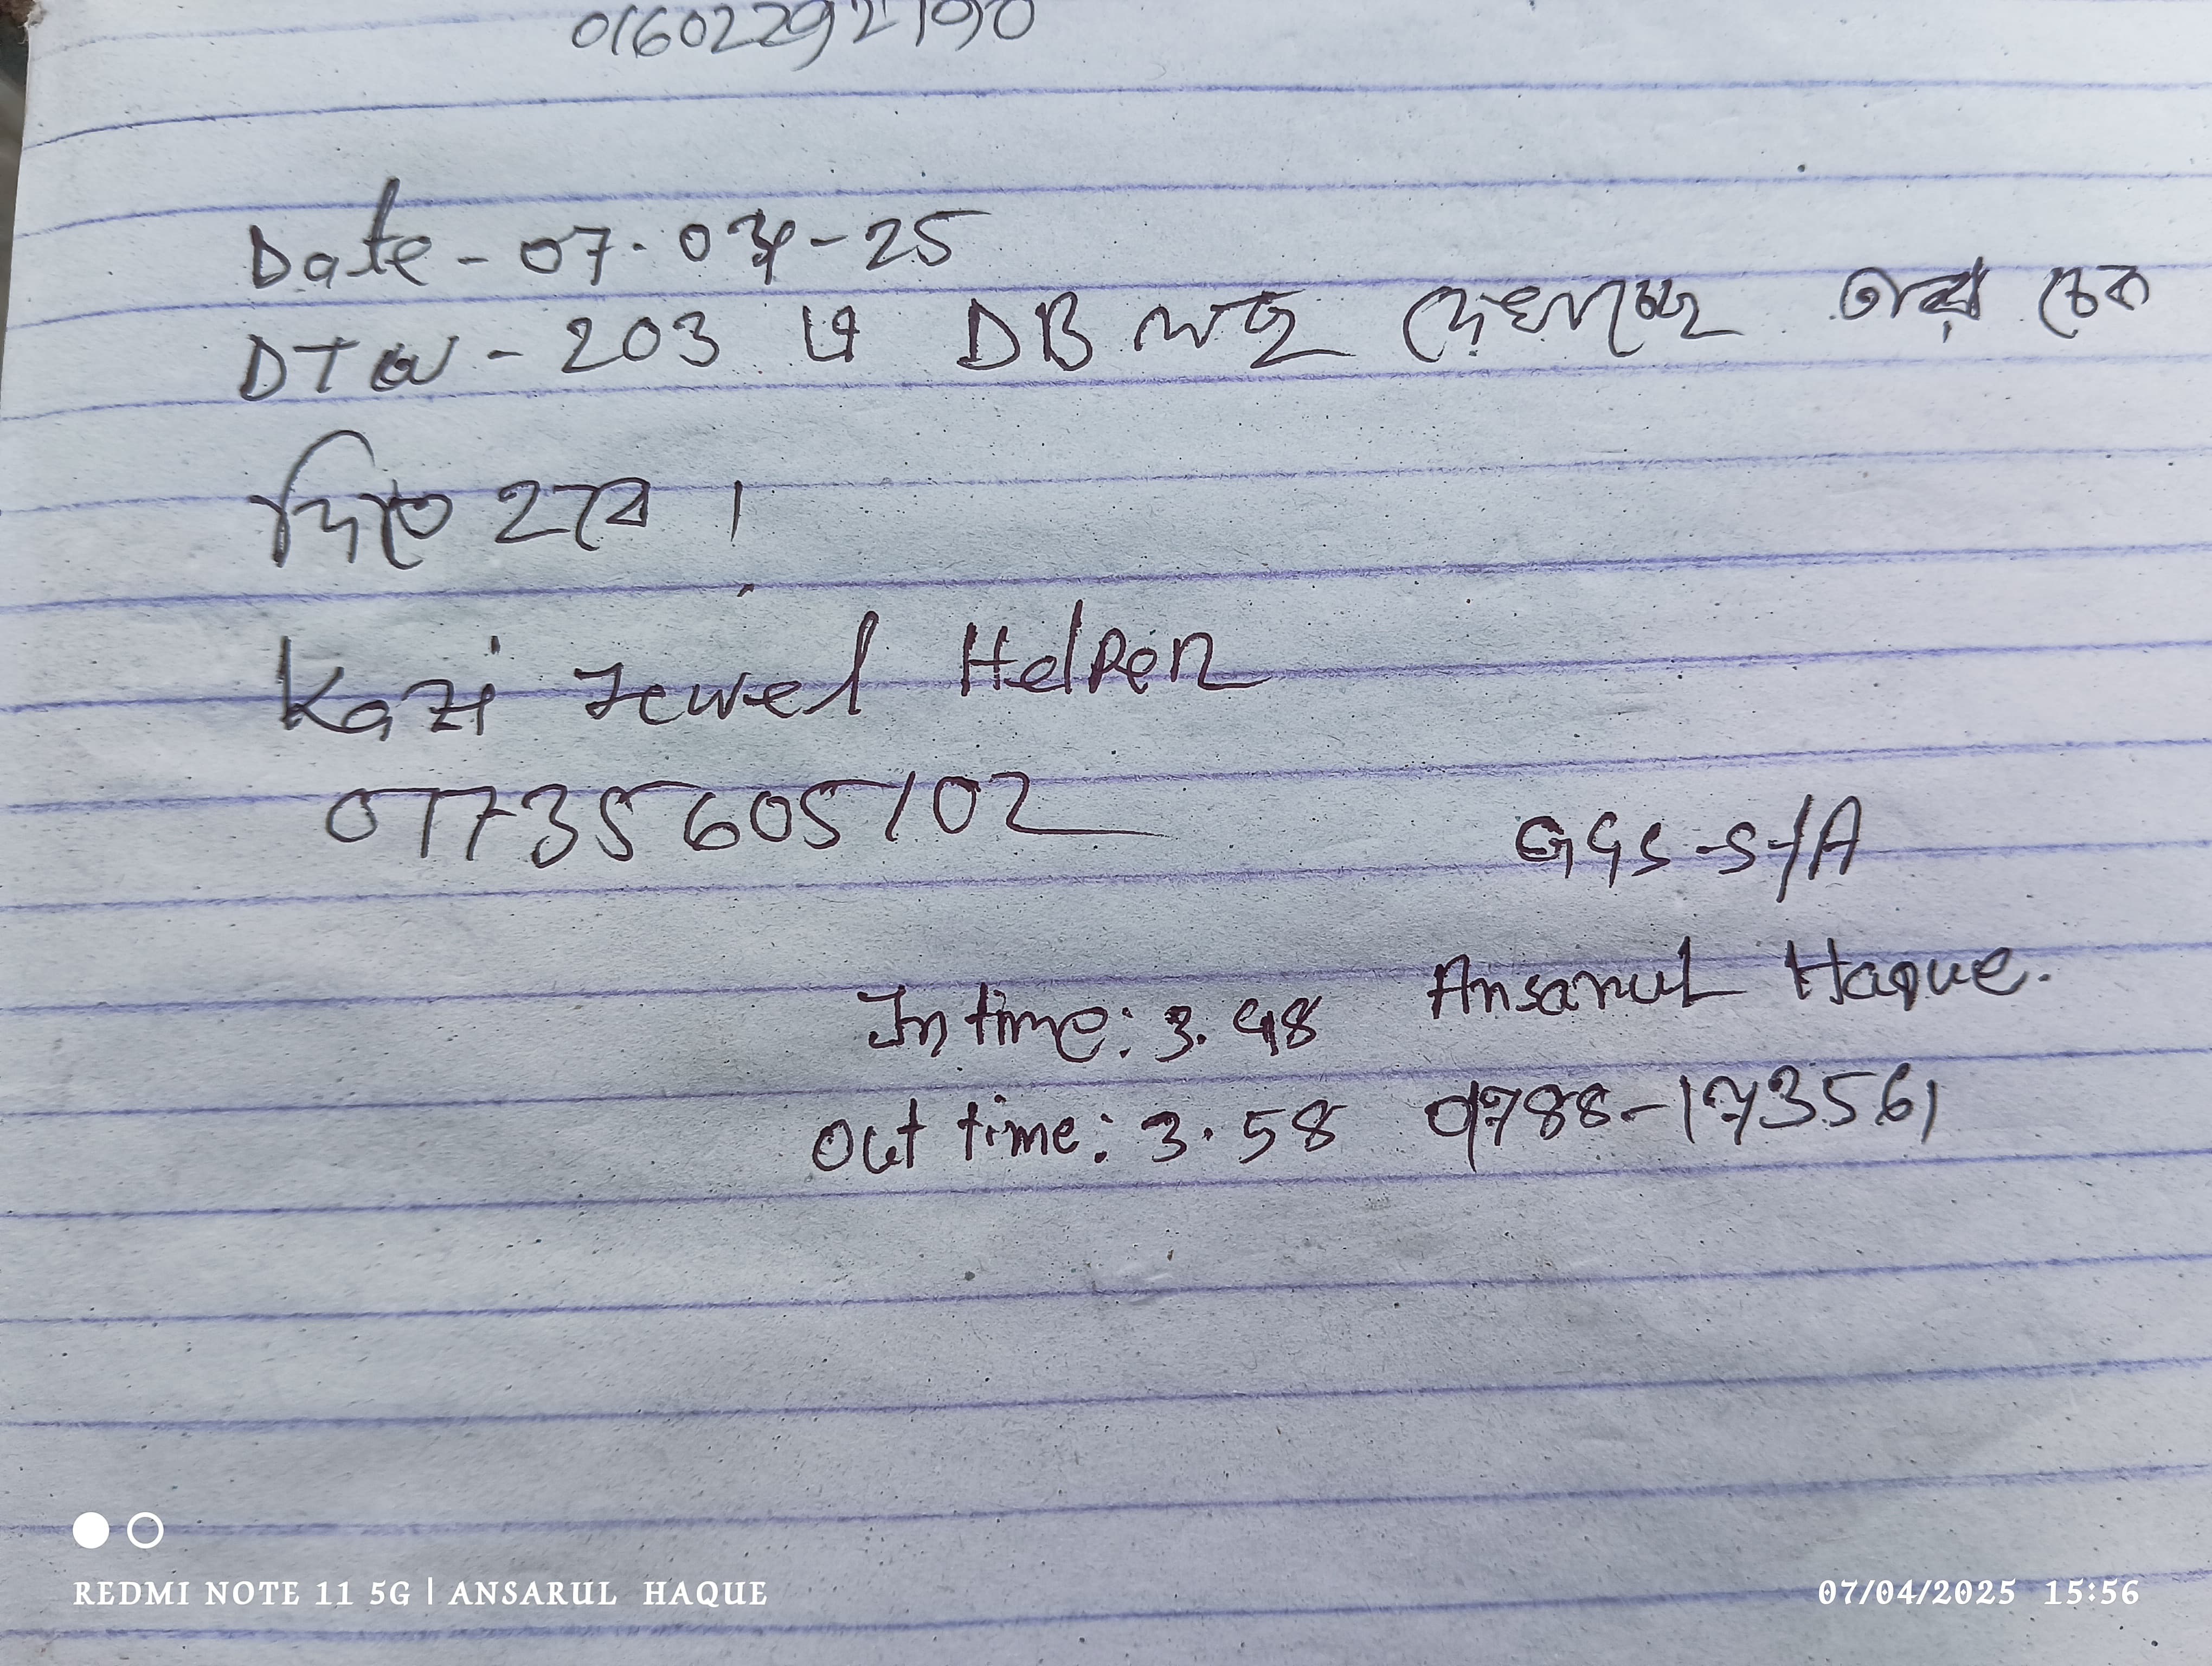 01602292190
Date - 07. 04 - 25
DTW - 203 এ DB লস দেখাচ্ছে তার চেক
দিতে হবে।
Kazi Jewel Helper
01735605102
GGS-S/A
Ansarul Haque.
In time: 3.48
01788-173561
Out time: 3.58
REDMI NOTE 11 5G | ANSARUL HAQUE
07/04/2025 15:56